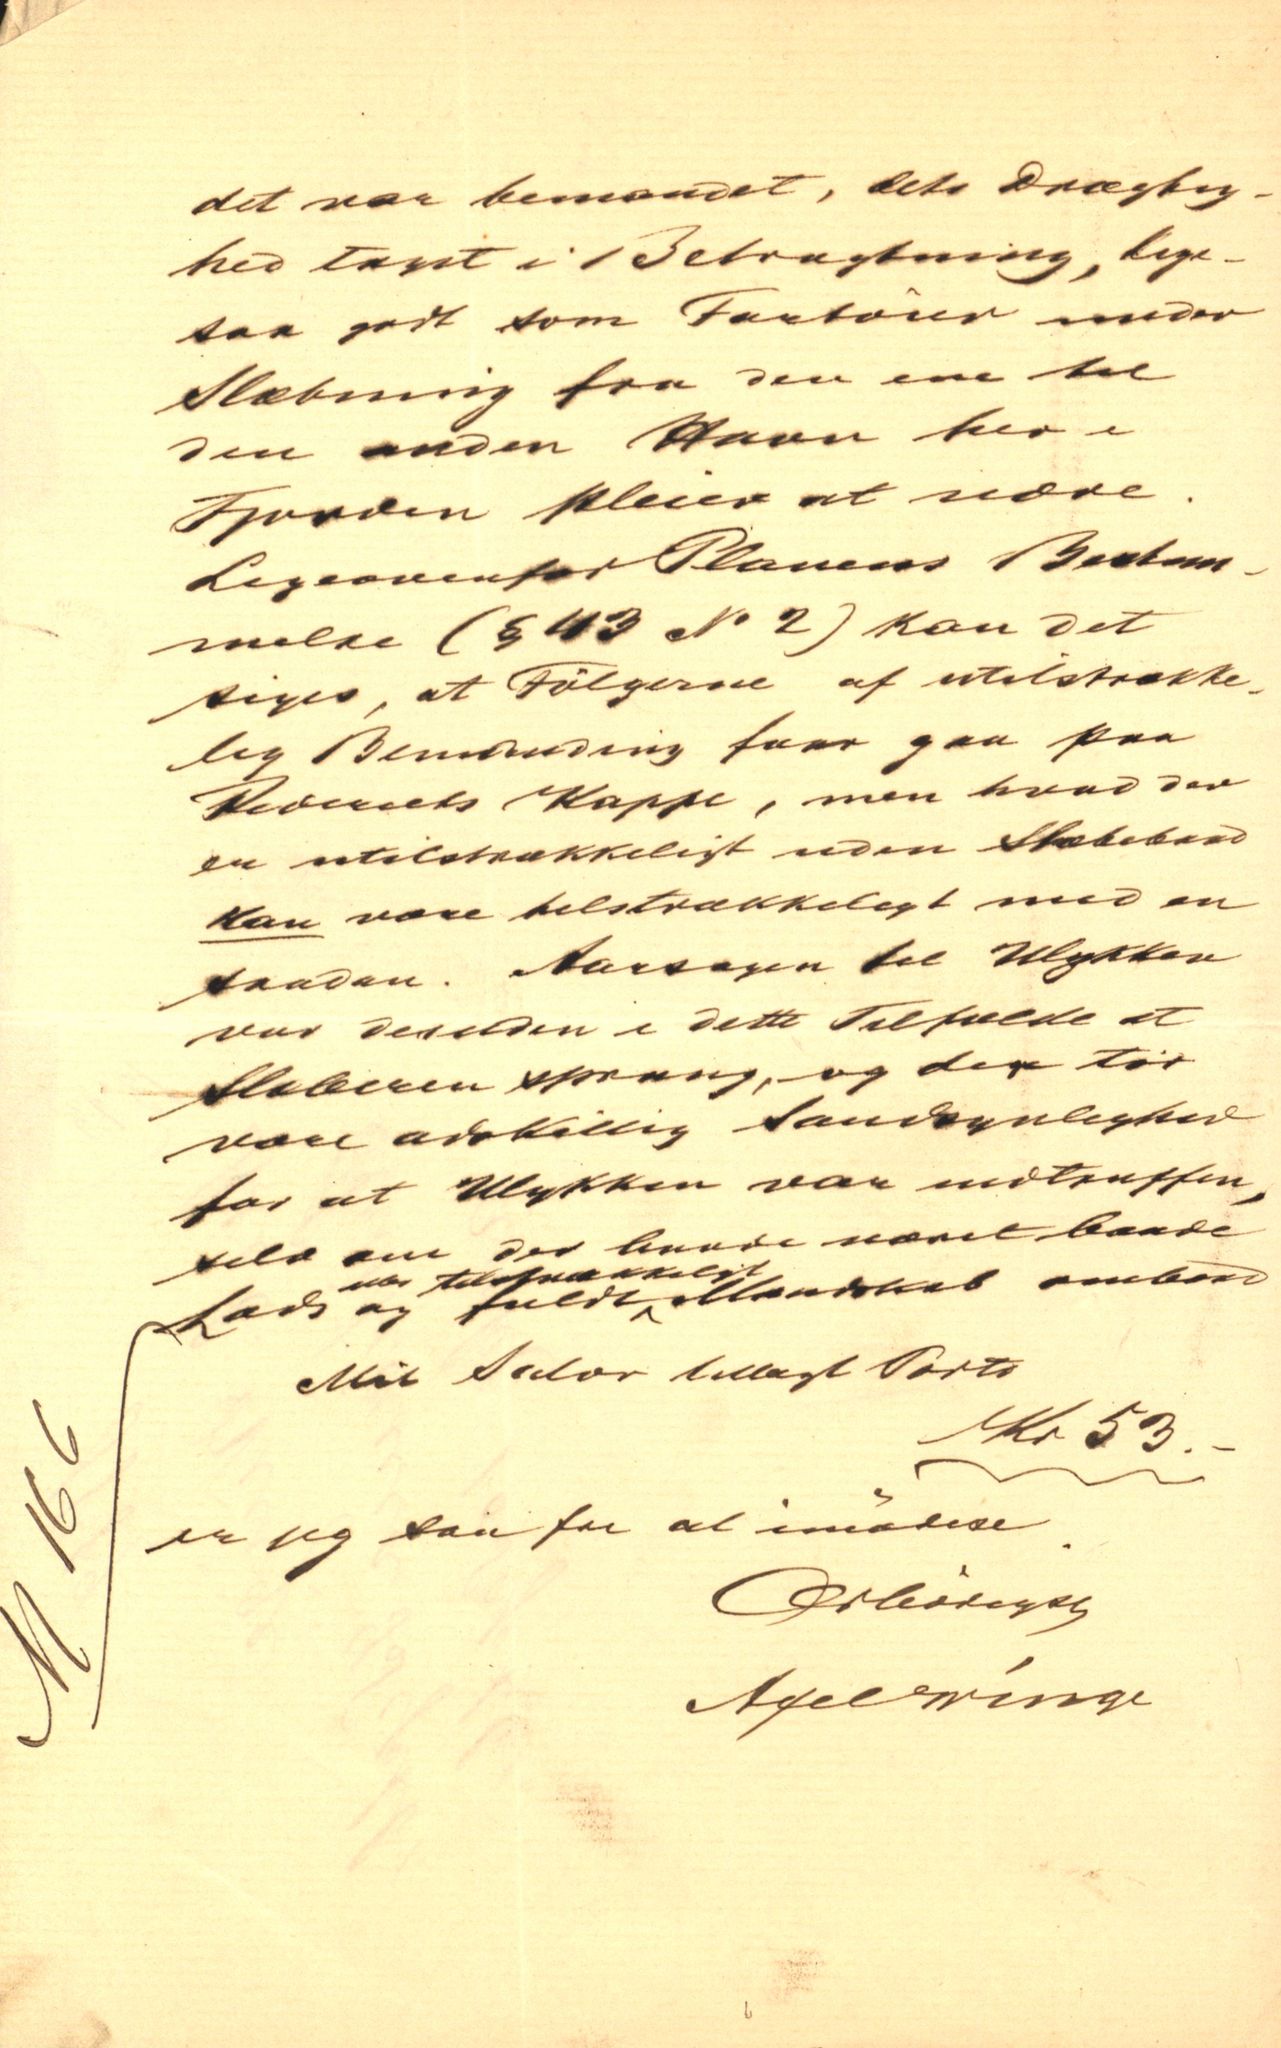 det var bemandet, dets Drægtig-
hed taget i Betragtning, lige-
saa godt som Fartöier under
Slæbning fra den ene til
den anden Havn her i
Fjorden pleier at være.
Ligeoverfor Planens Bestem-
melse (§ 43 No 2) kan det
siges, at Fölgerne af utilstrække-
lig Bemanding faar gaa paa
Rederiets Kappe, men hvad der
er utilstrækkeligt uden Slæbebaad
kan være tilstrækkeligt med en
saadan. Aarsagen til Ulykken
var desuden i dette Tilfælde at
Slæberen sprang, og der tör
være adskillig Sandsynlighed
for at Ulykken var indtruffen,
selv om der havde været baade
eller tilstrækkeligt
Lods og fuldt Mandskab ombord
Mit Salær tillagt Porto
Kr 53.-
er jeg saa fri at imödese.
Ærbödigst
Axel Winge
M 166